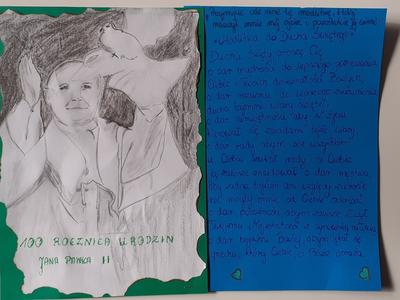 100 ROCZNICA URODZIN
JANA PAWŁA II
nauczył mnie mój ojciec i pozostałem jej wierny
"Modlitwa do Ducha Świętego"
Duchu Święty proszę Cię
o dar mądrości do lepszego poznawania
Ciebie i Twoich doskonałości Bożych,
o dar rozumu do lepszego zrozumienia
ducha tajemnic wiary świętej,
o dar umiejętności, aby w życiu
kierował się zasadami tejże wiary,
o dar rady abym we wszystkim
u Ciebie szukał rady i u Ciebie
ją zawsze znajdował, o dar męstwa,
aby żadna bojaźń ani względy ziemskie
nie mogły mnie od Ciebie oderwać,
o dar pobożności abym zawsze służył
Twojemu Majestatowi z synowską miłością
o dar bojaźni Bożej, abym lękał się
grzechu, który Ciebie, o Boże obraża.